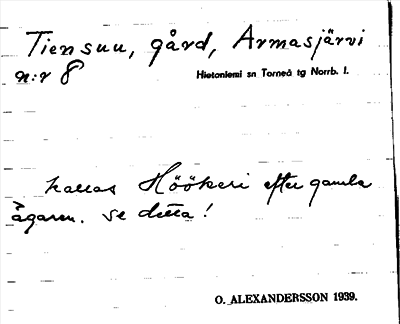 Tiensuu, gård, Armasjärvi
n:r 8 Hietaniemi sn Torneå tg Norrb. l.
kallas Höökeri efter gamla
ägaren. Se detta!
O. ALEXANDERSSON 1939.